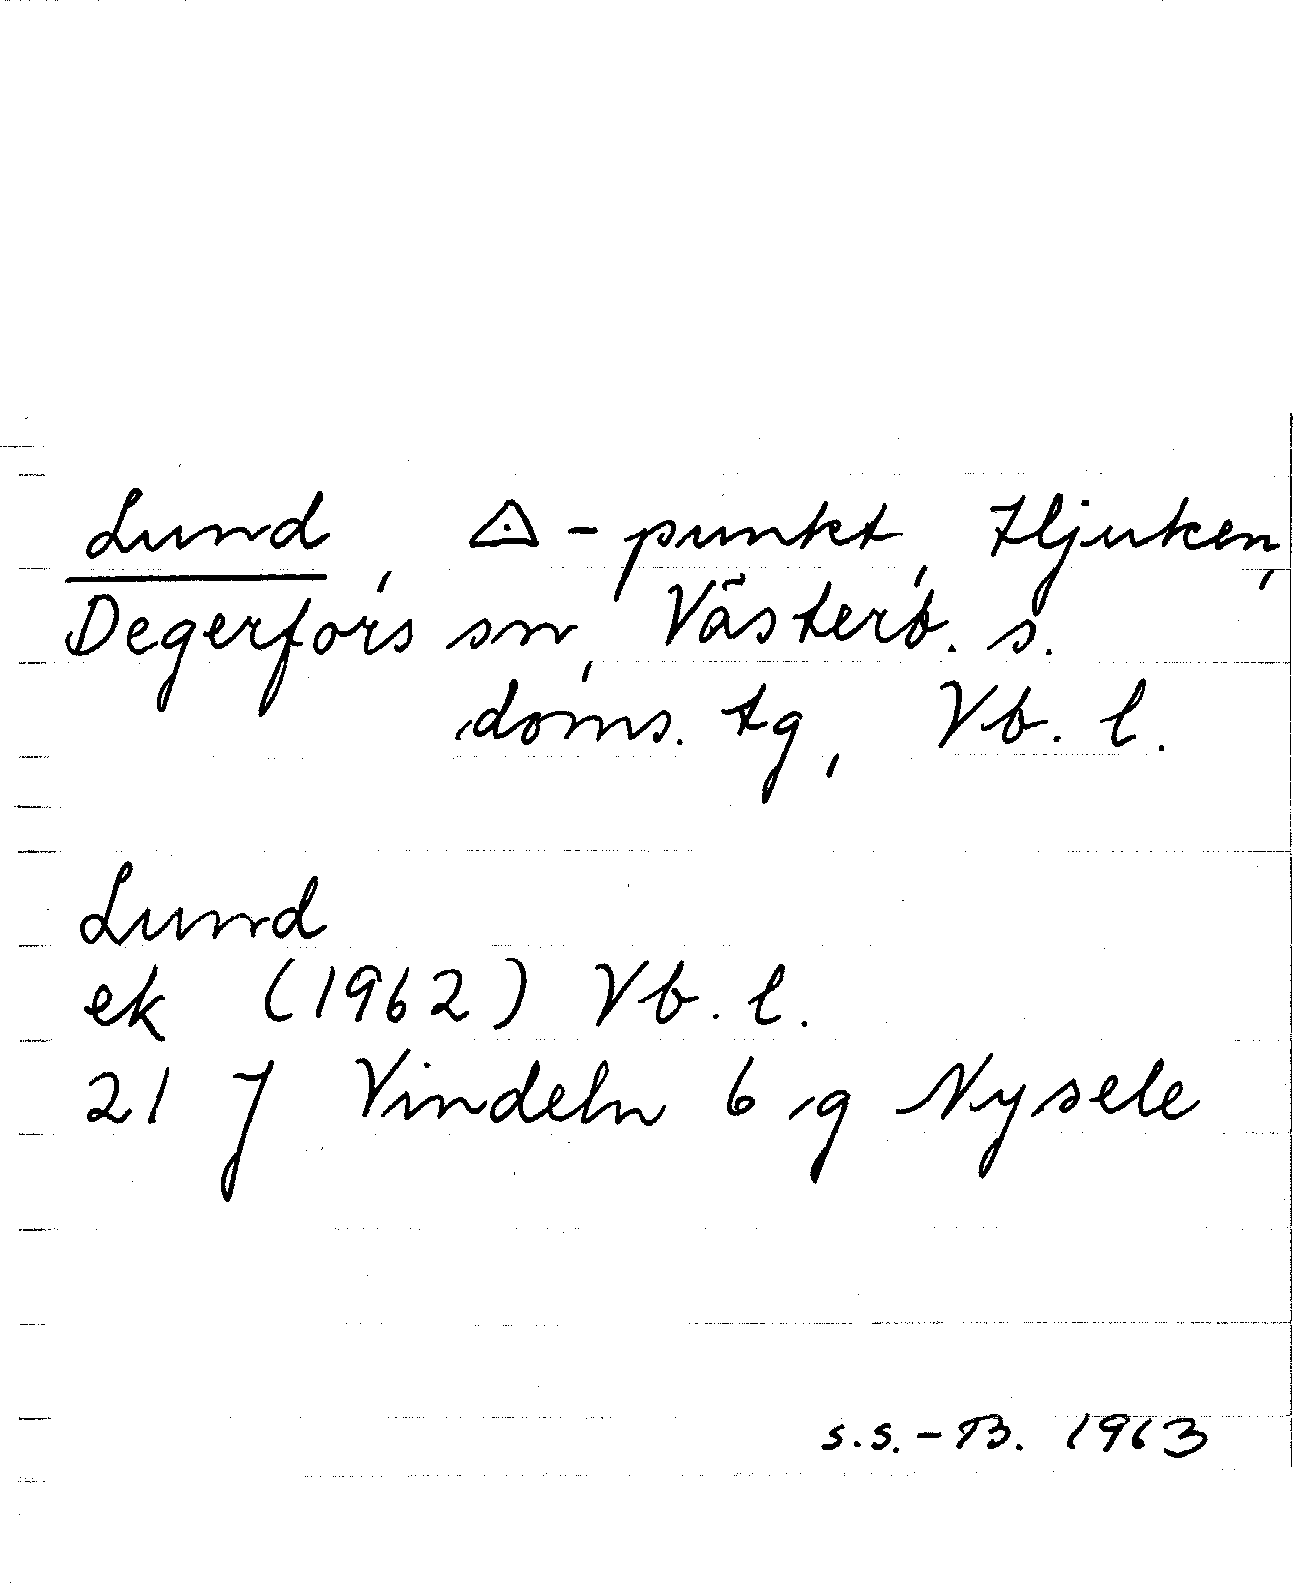 Lund, △-punkt, Hjuken,
Degerfors sn, Västerb. s.
doms. tg, Vb. l.
Lund
ek (1962) Vb. l.
21 J Vindeln 6 g Nysele
s.s.-B. 1963